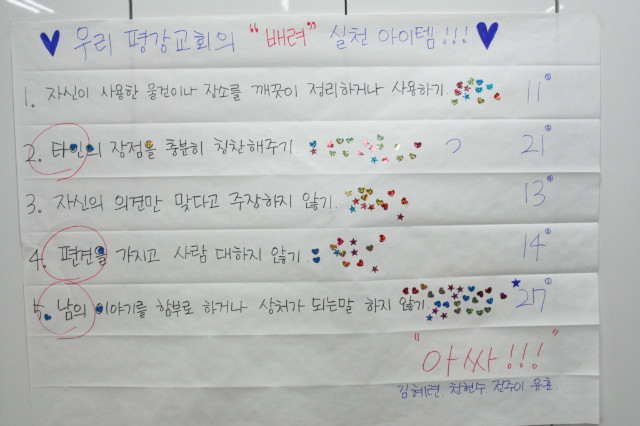 ♥ 우리 평강교회의 "배려" 실천 아이템!!! ♥
1. 자신이 사용한 물건이나 장소를 깨끗이 정리하거나 사용하기. 11
2. 타인의 장점을 충분히 칭찬해주기 21
3. 자신의 의견만 맞다고 주장하지 않기. 13
4. 편견을 가지고 사람 대하지 않기. 14
5. 남의 이야기를 함부로 하거나 상처가 되는말 하지 않기. ★ 27
"아싸!!!"
김혜련. 천현수. 전주이. 유훈.